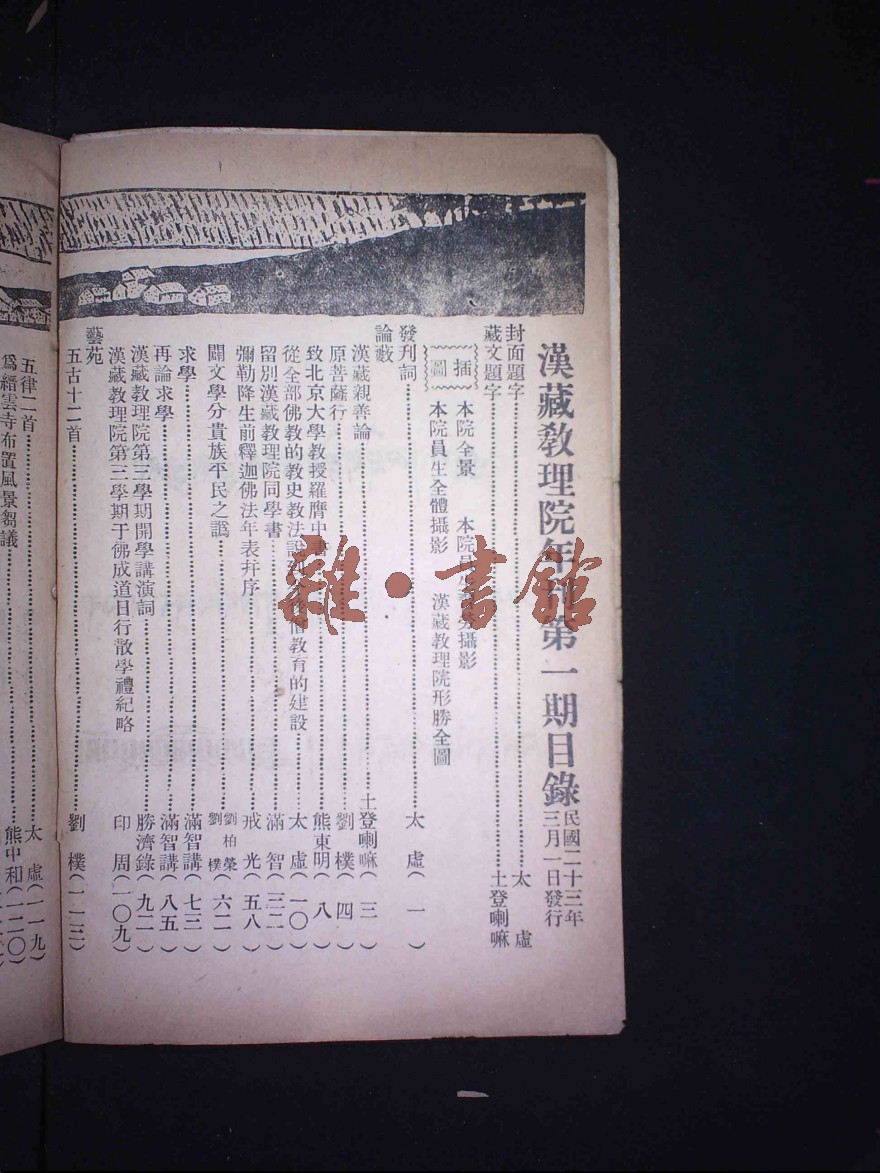 漢藏教理院年刊第一期目錄
民國二十三年
三月一日發行
封面題字……太虛
藏文題字……土登喇嘛
插圖
本院全景 本院員生 攝影
本院員生全體攝影 漢藏教理院形勝全圖
發刊詞……太虛(一)
論藪
漢藏親善論……土登喇嘛(三)
原菩薩行……劉樸(四)
致北京大學教授羅膺中書……熊東明(八)
從全部佛教的教史教法說到 僧教育的建設……太虛(一〇)
留別漢藏教理院同學書……滿智(三二)
彌勒降生前釋迦佛法年表幷序……戒光(五八)
闢文學分貴族平民之譌……劉柏榮 劉樸(六二)
求學……滿智講(七三)
再論求學……滿智講(八五)
漢藏教理院第三學期開學講演詞……勝濟錄(九二)
漢藏教理院第三學期于佛成道日行散學禮紀略 印周(一〇九)
藝苑
五古十二首……劉樸(一一三)
五律二首……太虛(一一九)
爲縉雲寺布置風景芻議……熊中和(一二〇)
雜·書館